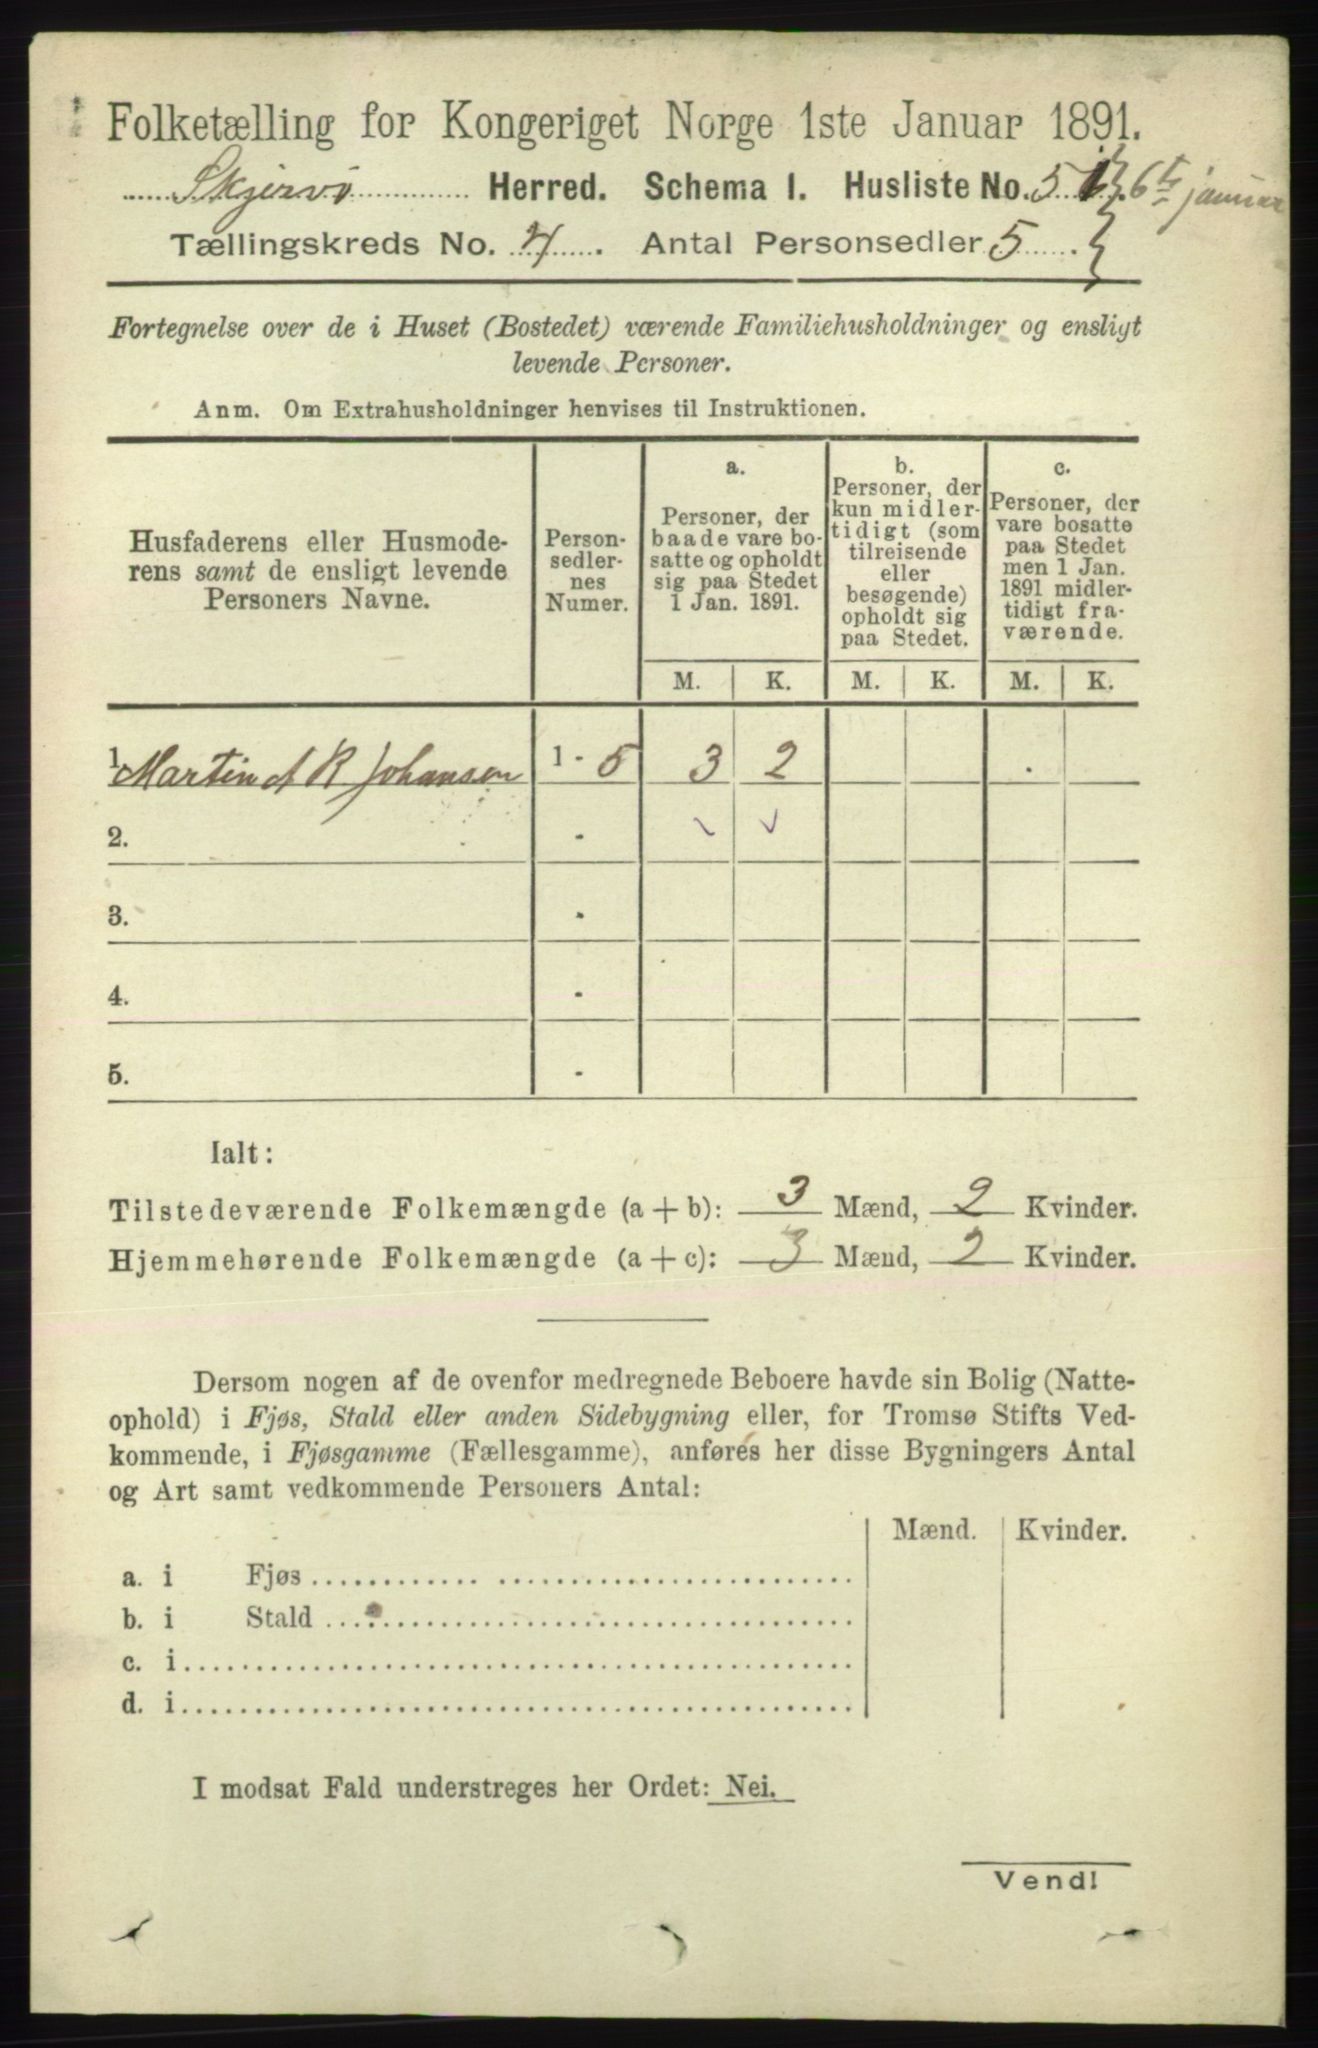 Folketælling for Kongeriget Norge 1ste Januar 1891.
Skjervø Herred. Schema 1. Husliste No. 51 6t januar
Tællingskreds No. 4. Antal Personsedler 5
Fortegnelse over de i Huset (Bostedet) værende Familiehusholdninger og ensligt
levende Personer.
Anm. Om Extrahusholdninger henvises til Instruktionen.
Husfaderens eller Husmode-
rens samt de ensligt levende
Personers Navne.
Person-
sedler-
nes
Numer.
a.
Personer, der
baade vare bo-
satte og opholdt
sig paa Stedet
1 Jan. 1891.
b.
Personer, der
kun midler-
tidigt (som
tilreisende
eller
besøgende)
opholdt sig
paa Stedet.
c.
Personer, der
vare bosatte
paa Stedet
men 1 Jan.
1891 midler-
tidigt fra-
værende.
M. K. M. K. M. K.
1. Martin A R Johansen 1 - 5 3 2
2. -
3. -
4. -
5. -
Ialt:
Tilstedeværende Folkemængde (a + b): 3 Mænd, 2 Kvinder.
Hjemmehørende Folkemængde (a + c): 3 Mænd, 2 Kvinder.
Dersom nogen af de ovenfor medregnede Beboere havde sin Bolig (Natte-
ophold) i Fjøs, Stald eller anden Sidebygning eller, for Tromsø Stifts Ved-
kommende, i Fjøsgamme (Fællesgamme), anføres her disse Bygningers Antal
og Art samt vedkommende Personers Antal:
Mænd. Kvinder.
a. i Fjøs
b. i Stald
c. i
d. i
I modsat Fald understreges her Ordet: Nei.
Vend!